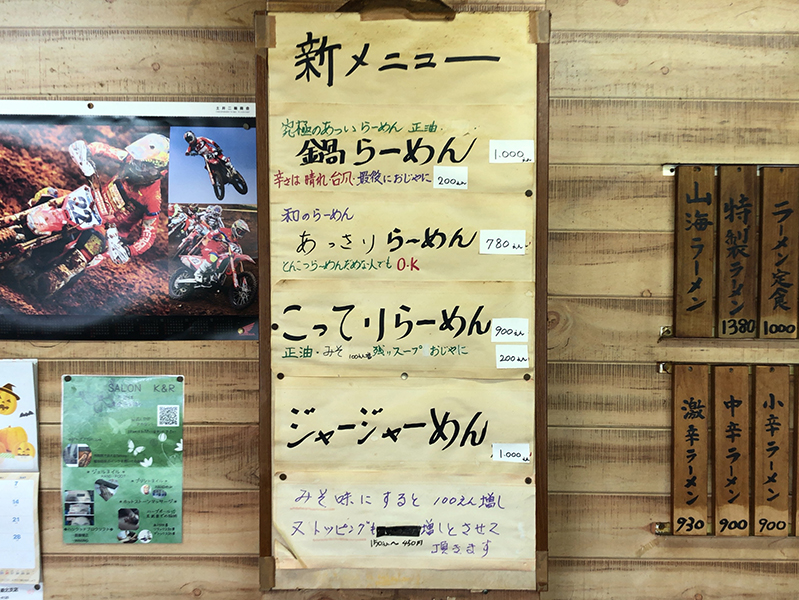 新メニュー
究極のあっい らーめん 正油
鍋らーめん
1.000
辛さは 晴れ 台爪・最後におじやに
200えん
和のらーめん
あっさりらーめん
780えん
とんこつらーめんだめな人でも O.K
こってりらーめん
900えん
正油・みそ 100えん増 残りスープ おじやに
200えん
ジャージャーめん
1.000えん
みそ味にすると 100えん増し
又トッピングも 増しとさせて
150えん〜450円
頂きます
22
SALON K&R
7
14
21
28
山海ラーメン
特製ラーメン
1380
ラーメン定食
1000
激辛ラーメン
930
中辛ラーメン
900
小辛ラーメン
900